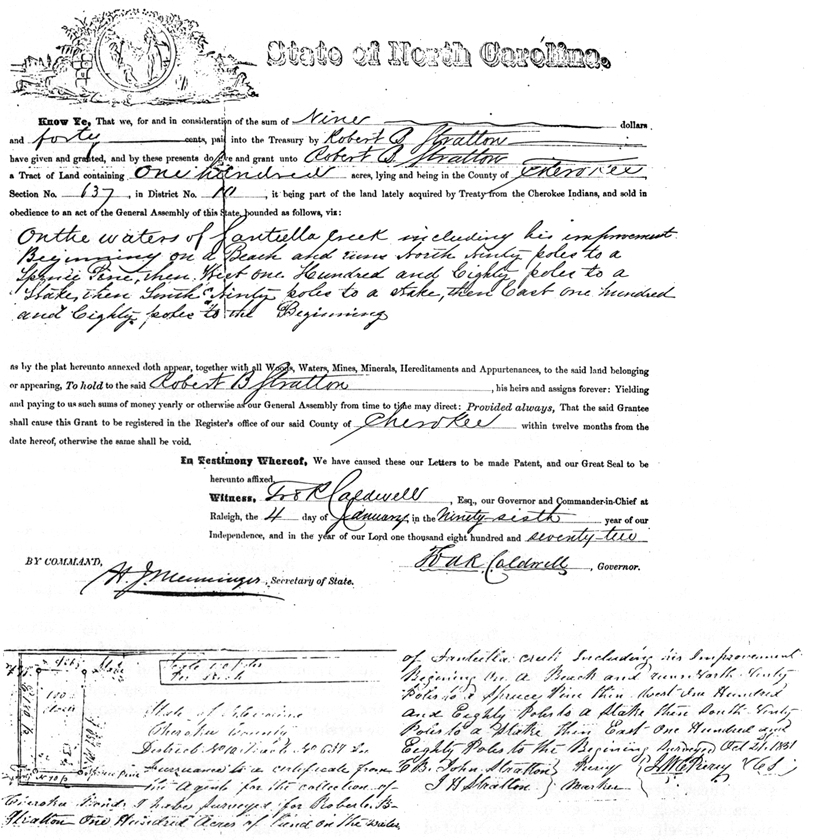 State of North Carolina.
Know Ye, That we, for and in consideration of the sum of Nine dollars
and forty cents, paid into the Treasury by Robert B Stratton
have given and granted, and by these presents do give and grant unto Robert B. Stratton
a Tract of Land containing One hundred acres, lying and being in the County of Cherokee
Section No. 637, in District No. 10, it being part of the land lately acquired by Treaty from the Cherokee Indians, and sold in
obedience to an act of the General Assembly of this State, bounded as follows, viz:
On the waters of Creek including his improvement
Beginning on a Beach and runs North Ninty poles to a
Spruse Pine, then West one Hundred and Eighty poles to a
Stake, then South Ninty poles to a stake, then East one hundred
and Eighty poles to the Beginning
as by the plat hereunto annexed doth appear, together with all Woods, Waters, Mines, Minerals, Hereditaments and Appurtenances, to the said land belonging
or appearing, To hold to the said Robert B Stratton, his heirs and assigns forever: Yielding
and paying to us such sums of money yearly or otherwise as our General Assembly from time to time may direct: Provided always, That the said Grantee
shall cause this Grant to be registered in the Register's office of our said County of Cherokee within twelve months from the
date hereof, otherwise the same shall be void.
In Testimony Whereof, We have caused these our Letters to be made Patent, and our Great Seal to be
hereunto affixed.
Witness, Tod R Caldwell, Esq., our Governor and Commander-in-Chief at
Raleigh, the 4 day of January, in the Ninety-sixth year of our
Independence, and in the year of our Lord one thousand eight hundred and seventy-two
BY COMMAND,
Tod R Caldwell, Governor.
H. J. Menninger, Secretary of State.
100
State of
Cherokee County
District No 10 Tract No 637 In
Pursuance to a certificate from
the Agent for the collection of
Cherokee Bonds I have surveyed for Robert B.
Stratton One Hundred Acres of Land on the waters
of creek Including his Improvement
Begining On A Beach and runs North Ninty
Poles to a Spruce Pine then West One Hundred
and Eighty Poles to a Stake then South Ninty
Poles to a Stake then East One Hundred and
Eighty Poles to the Begining Surveyed Oct 21
C B. John Stratton
J H Stratton Marker